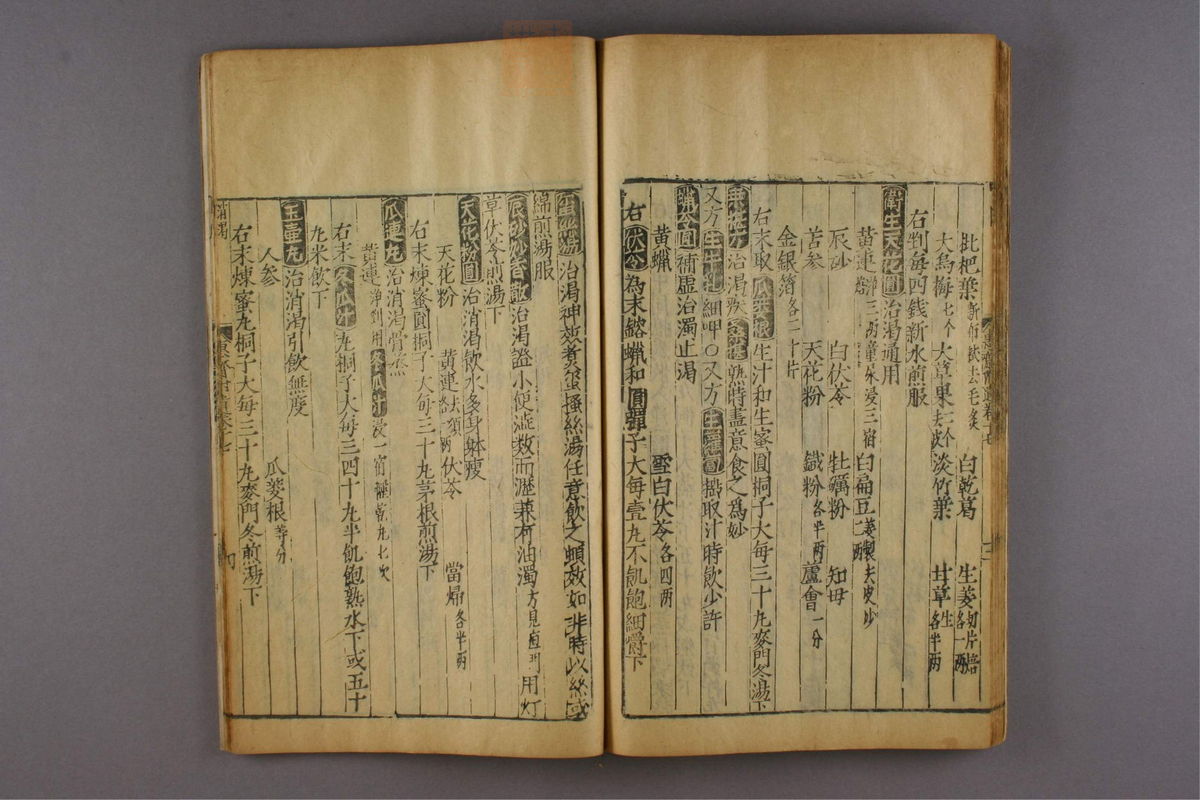 枇杷葉新布拭去毛炙 白乾葛 生姜切片焙各一兩
大烏梅七个 大草果二个去皮 淡竹葉 甘草生各半兩
右判每四錢新水煎服
衛生天花圓治渴通用
黄連淨三兩童尿浸三宿 白扁豆姜製去皮炒 兩
辰砂 白伏苓 牡蠣粉 知母
苦參 天花粉 鐵粉各半兩 蘆會一分
金銀箔各二十片
右末取瓜蔞根生汁和生蜜圓桐子大每三十丸麥門冬湯下
治渴疾 熟時盡意食之爲妙
又方生牛乳細呷〇又方生 搗取汁時飲少許
圓補虛治濁止渴
黄蠟 雪白伏苓各四兩
右伏苓為末鎔蠟和圓彈子大每壹丸不飢飽細嚼下
湯治渴神效煮蚕搔絲湯任意飲之頓效如非時以絲或
綿煎湯服
辰砂妙香散治渴證小便澁数而瀝兼有油濁方見 用灯
草伏苓煎湯下
天花粉圓治消渴飲水多身躰瘦
天花粉 黄連去須各一兩 伏苓 當歸各半兩
右末煉蜜圓桐子大每三十丸茅根煎湯下
瓜連丸治消渴骨蒸
黄連淨判用冬瓜汁浸一宿 乾凡七次
右末冬瓜汁丸桐子大每三四十丸半飢飽熟水下或五十
丸米飲下
玉壷丸治消渴引飲無度
人参 瓜蔞根等分
右末煉蜜丸桐子大每三十丸麥門冬煎湯下
消渴